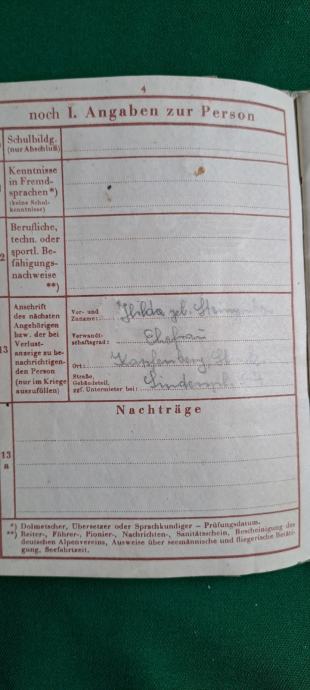 4
noch I. Angaben zur Person
Schulbildg.
(nur Abschluß)
Kenntnisse
in Fremd-
sprachen*)
(keine Schul-
kenntnisse)
2
Berufliche,
techn. oder
sportl. Be-
fähigungs-
nachweise
**)
13
Anschrift
des nächsten
Angehörigen
bzw. der bei
Verlust-
anzeige zu be-
nachrichtigen-
den Person
(nur im Kriege
auszufüllen)
Vor- und
Zuname: Hilda geb.
Verwandt-
schaftsgrad: Ehefrau
Ort: Kapfenberg
Straße,
Gebäudeteil,
ggf. Untermieter bei:
Nachträge
13
a
*) Dolmetscher, Übersetzer oder Sprachkundiger – Prüfungsdatum.
**) Reiter-, Führer-, Pionier-, Nachrichten-, Sanitätsschein, Bescheinigung des
deutschen Alpenvereins, Ausweise über seemännische und fliegerische Betäti-
gung, Seefahrtzeit.